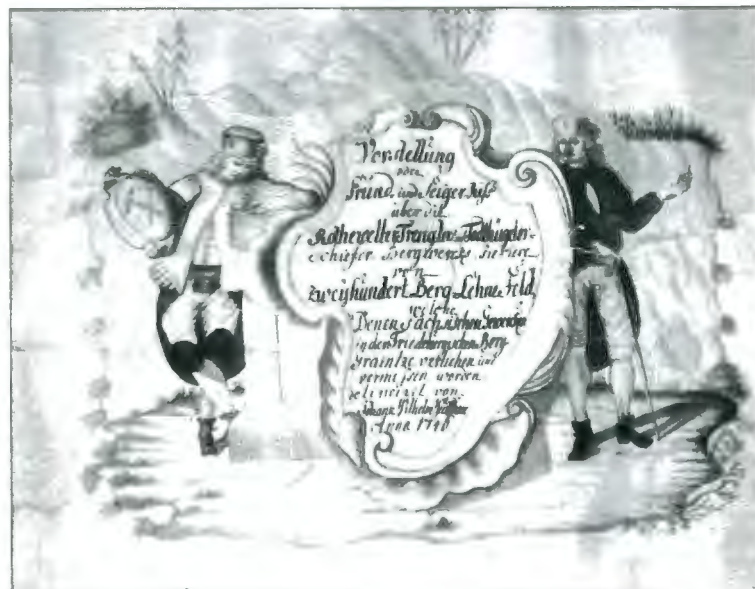 Vorstellung
oder
Grund und Seiger Riß
über die
Rothewelle
Schiefer Bergwercks Reviere
von
Zweyhundert Berg Lehne Feld,
welche
Denen Sächsischen
in der Friedeburgischen Berg
Graintze verliehen und
vermessen worden
von
Johann Wilhelm
Anno 1740